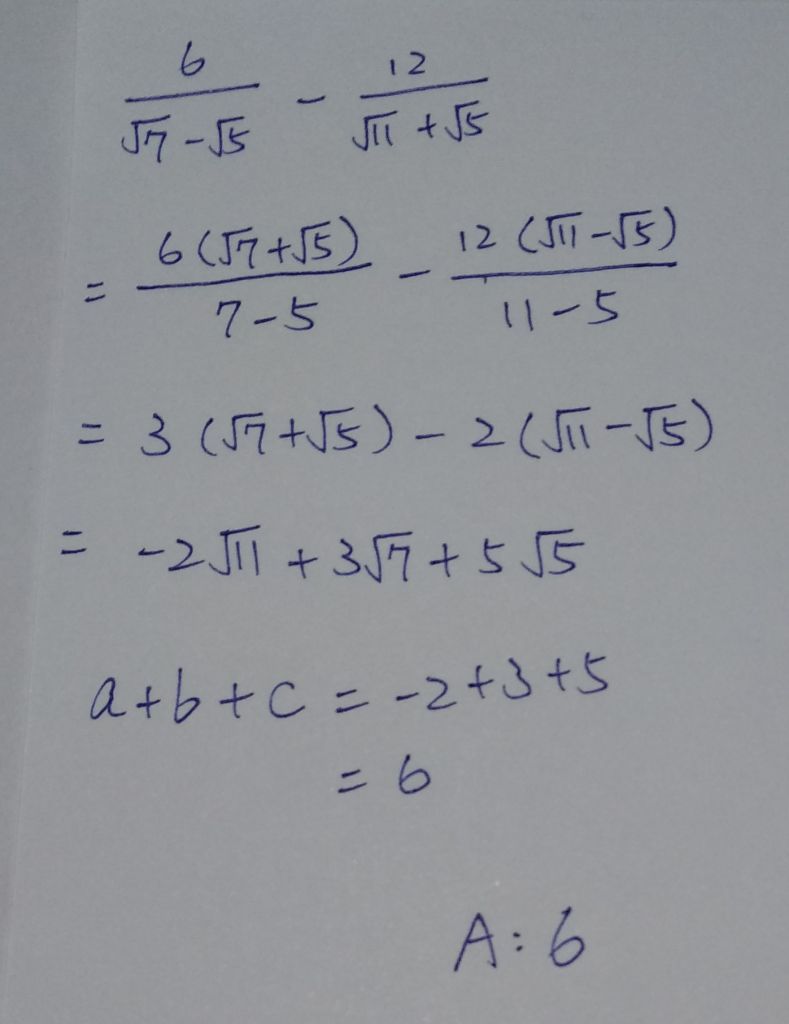 6/(√7-√5) - 12/(√11+√5)
= 6(√7+√5)/(7-5) - 12(√11-√5)/(11-5)
= 3(√7+√5) - 2(√11-√5)
= -2√11 + 3√7 + 5√5
a+b+c = -2+3+5
= 6
A: 6